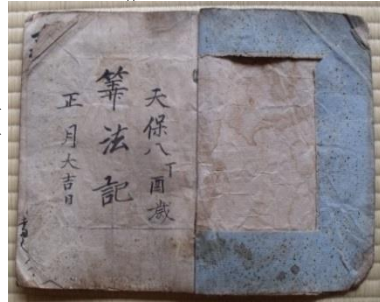 天保八丁酉歳
筭法記
正月大吉日